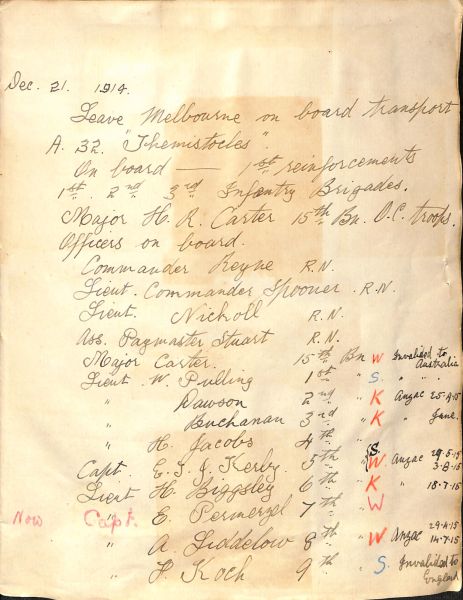 Dec. 21. 1914.
Leave Melbourne on board transport
A. 32. "Themistocles".
On board — 1st reinforcements
1st 2nd 3rd Infantry Brigades.
Major H. R. Carter 15th Bn. O.C. troops.
Officers on board.
Commander Keyne R.N.
Lieut. Commander Spooner. R.N.
Lieut. Nicholl R.N.
Ass. Paymaster Stuart R.N.
Major Carter. 15th Bn W Invalided to Australia
Lieut W. Pulling 1st " S. " "
" Dawson 2nd " K Anzac 25-4-15
" Buchanan 3rd " K " June.
" H. Jacobs 4th "
Capt E. F. J. Kerby. 5th " {S. W. Anzac 29.5.15 3-8-15
Lieut H. Biggsley 6th " K " 18-7-15
Now Capt. E. Permezel 7th " W
" A. Liddelow 8th " W Anzac 29-4-15 14-7-15
" F. Koch 9th " S. Invalided to England